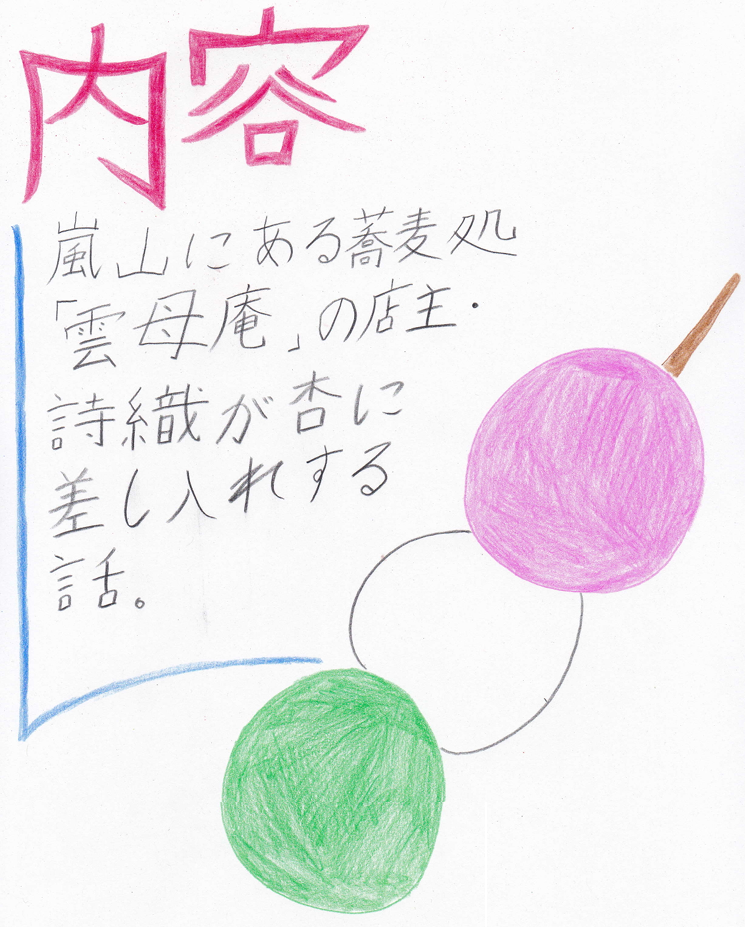 内容
嵐山にある蕎麦処
「雲母庵」の店主・
詩織が杏に
差し入れする
話。